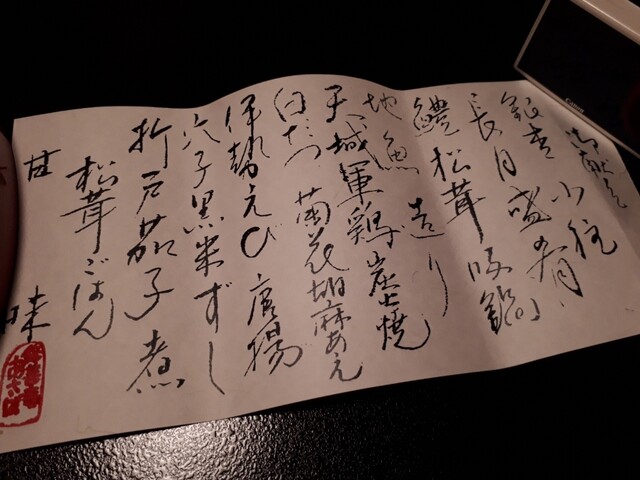 御献立
銀杏 小柱
長月盛肴
鱧松茸 吸鍋
地魚 造り
天城軍鶏炭火焼
白だつ 菊花胡麻あえ
伊勢えび 唐揚
穴子黒米ずし
折戸茄子 煮
松茸ごはん
甘味